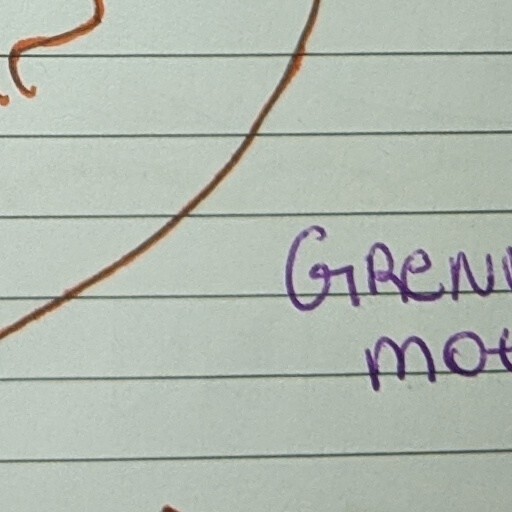 GRENI
mot